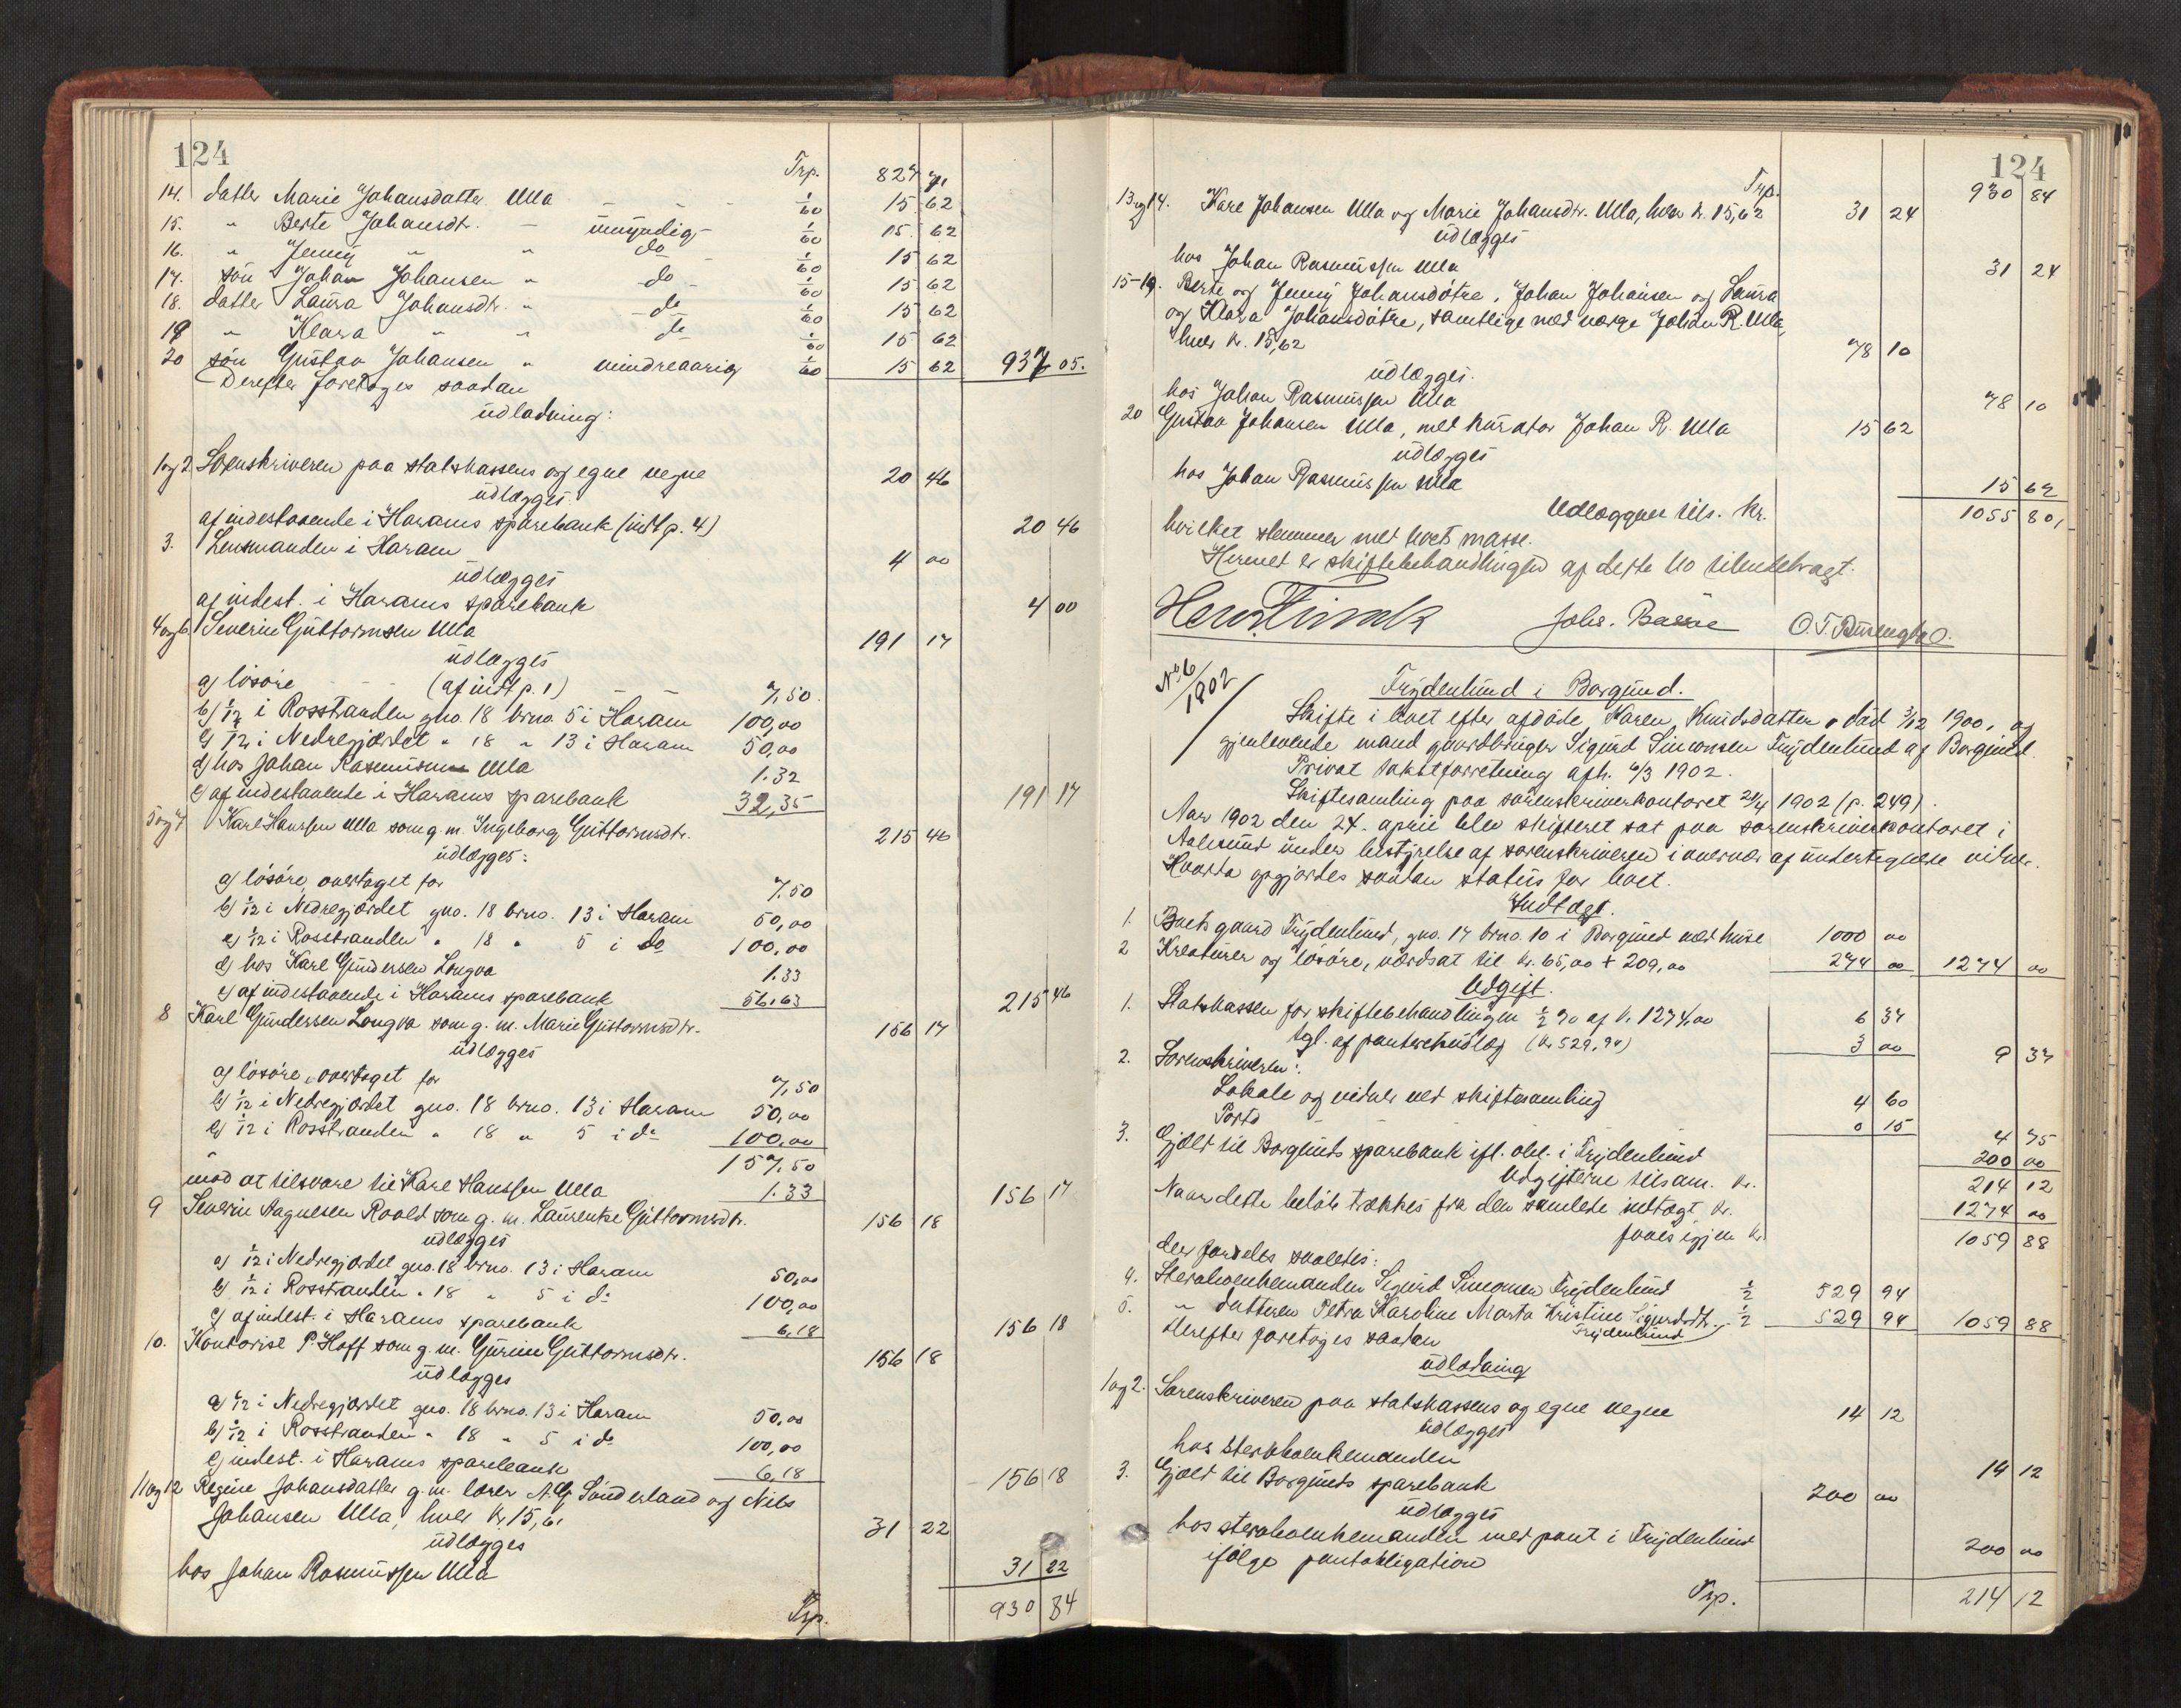 124
Trp. 827 71
14. datter Marie Johansdatter Ulla 1/60 15 62
15. " Berte Johansdtr. - umyndig 1/60 15 62
16. " Jenny " " do 1/60 15 62
17. søn Johan Johansen " do 1/60 15 62
18. datter Laura Johansdtr. " do 1/60 15 62
19 " Klara " " do 1/60 15 62
20 søn Gustav Johansen " mindreaarig 1/60 15 62 937 05.
Derefter foretoges saadan
udlodning:
1og2 Sorenskriveren paa statskassens og egne vegne 20 46
udlægges
af indestaaende i Harams sparebank (indt p. 4) 20 46
3. Lensmanden i Haram 4 00
udlægges
af indest. i Harams sparebank 4 00
4og6 Severin Guttormsen Ulla 191 17
udlægges
a) løsøre - - (af indt p. 1) - - 7,50
b) 1/12 i Rosstranden gno. 18 brno. 5 i Haram 100,00
c) 1/12 i Nedregjærdet " 18 " 13 i Haram 50,00
d) hos Johan Rasmussen Ulla 1.32
e) af indestaaende i Harams sparebank 32,35 191 17
5og7 Karl Hanssen Ulla som g. m. Ingeborg Guttormsdtr. 215 46
udlægges:
a) løsøre, overtaget for 7.50
b) 1/12 i Nedregjærdet gno. 18 brno. 13 i Haram 50,00
c) 1/12 i Rosstranden " 18 " 5 i do 100,00
d) hos Karl Gundersen Longva 1.33
e) af indestaaende i Harams sparebank 56,63 215 46
8 Karl Gundersen Longva som g. m. Marie Guttormsdtr. 156 17
udlægges
a) løsøre, overtaget for 7,50
b) 1/12 i Nedregjærdet gno. 18 brno. 13 i Haram 50,00
c) 1/12 i Rosstranden " 18 " 5 i do 100,00
157,50
mod at tilsvare til Karl Hanssen Ulla 1.33 156 17
9 Severin Hagnesen Roald som g. m. Laurentze Guttormsdtr. 156 18
udlægges
a) 1/12 i Nedregjærdet gno. 18 brno. 13 i Haram 50,00
b) 1/12 i Rosstranden " 18 " 5 i do 100,00
c) af indest. i Harams sparebank 6,18 156 18
10. Kontorist P. Hoff som g. m. Gurine Guttormsdtr. 156 18
udlægges
a) 1/12 i Nedregjærdet gno. 18 brno. 13 i Haram 50,00
b) 1/12 i Rosstranden " 18 " 5 i do 100,00
c) indest. i Harams sparebank 6,18 156 18
11og12 Regine Johansdatter g. m. lærer A. G. Sunderland og Nils
Johansen Ulla, hver kr 15,61 31 22
udlægges
hos Johan Rasmussen Ulla 31 22
Trp. 930 84
124
Trp. 930 84
13og14. Kare Johansen Ulla og Marie Johansdtr. Ulla, hver kr. 15,62 31 24
udlægges
hos Johan Rasmussen Ulla 31 24
15-19. Berte og Jenny Johansdøtre, Johan Johansen og Laura
og Klara Johansdøtre, samtlige med værge Johan R. Ulla,
hver kr. 15,62 78 10
udlægges.
hos Johan Rasmussen Ulla 78 10
20 Gustav Johansen Ulla, med kurator Johan R. Ulla 15 62
udlægges
hos Johan Rasmussen Ulla 15 62
Udlæggene tils. kr. 1055 80,
hvilket stemmer med boets masse.
Hermed er skiftebehandlingen af dette bo tilendebragt.
Herm. Finck Johs. Basse
No 6/1902
Frydenlund i Borgund.
Skifte i boet efter afdøde Karen Knudsdatter, død 3/12 1900, og
gjenlevende mand gaardbruger Sigurd Simonsen Frydenlund af Borgund.
Privat takstforretning afh. 6/3 1902.
Skiftesamling paa sorenskriverkontoret 24/4 1902 (p. 249).
Aar 1902 den 24. april blev skifteret sat paa sorenskriverkontoret i
Aalesund under bestyrelse af sorenskriveren i overvær af undertegnede vidner.
Hvorda opgjordes saadan status for boet.
Indtægt.
1. Boets gaard Frydenlund, gno. 17 brno. 10 i Borgund med huse 1000 00
2 Kreaturer og løsøre, værdsat til kr. 65,00 + 209,00 274 00 1274 00
Udgift.
1. Statskassen for skiftebehandlingen 1/2 % af kr. 1274,00 6 37
tgl. af panteretudlæg (kr 529,94) 3 00 9 37
2. Sorenskriveren:
Lokale og vidner ved skiftesamling 4 60
Porto 0 15 4 75
3. Gjæld til Borgunds sparebank ifl. obl. i Frydenlund 200 00
Udgifterne tilsam. kr. 214 12
Naar dette beløb trækkes fra den samlede indtægt, kr. 1274 00
faaes igjen kr 1059 88
der fordeles saaledes:
4. Stervboenkemanden Sigurd Simonsen Frydenlund 1/2 529 94
5. " datteren Petra Karoline Marta Kristine Sigurdsdtr. 1/2 529 94 1059 88
Frydenlund
Derefter foretoges saadan
udlodning
1og2. Sorenskriveren paa statskassens og egne vegne 14 12
udlægges
hos stervboenkemanden 14 12
3. Gjæld til Borgunds sparebank 200 00
udlægges
hos stervboenkemanden med pant i Frydenlund
ifølge pantobligation 200 00
Trp. 214 12